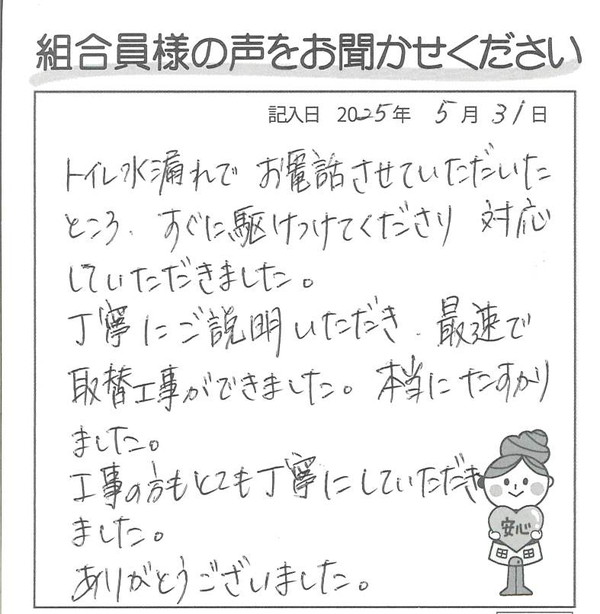 組合員様の声をお聞かせください
記入日 2025年 5月 31日
トイレ水漏れで お電話させていただいた
ところ、すぐに駆けつけてくださり 対応
していただきました。
丁寧にご説明いただき、最速で
取替工事ができました。本当にたすかり
ました。
工事の方もとても丁寧にしていただき
ました。
ありがとうございました。
安心